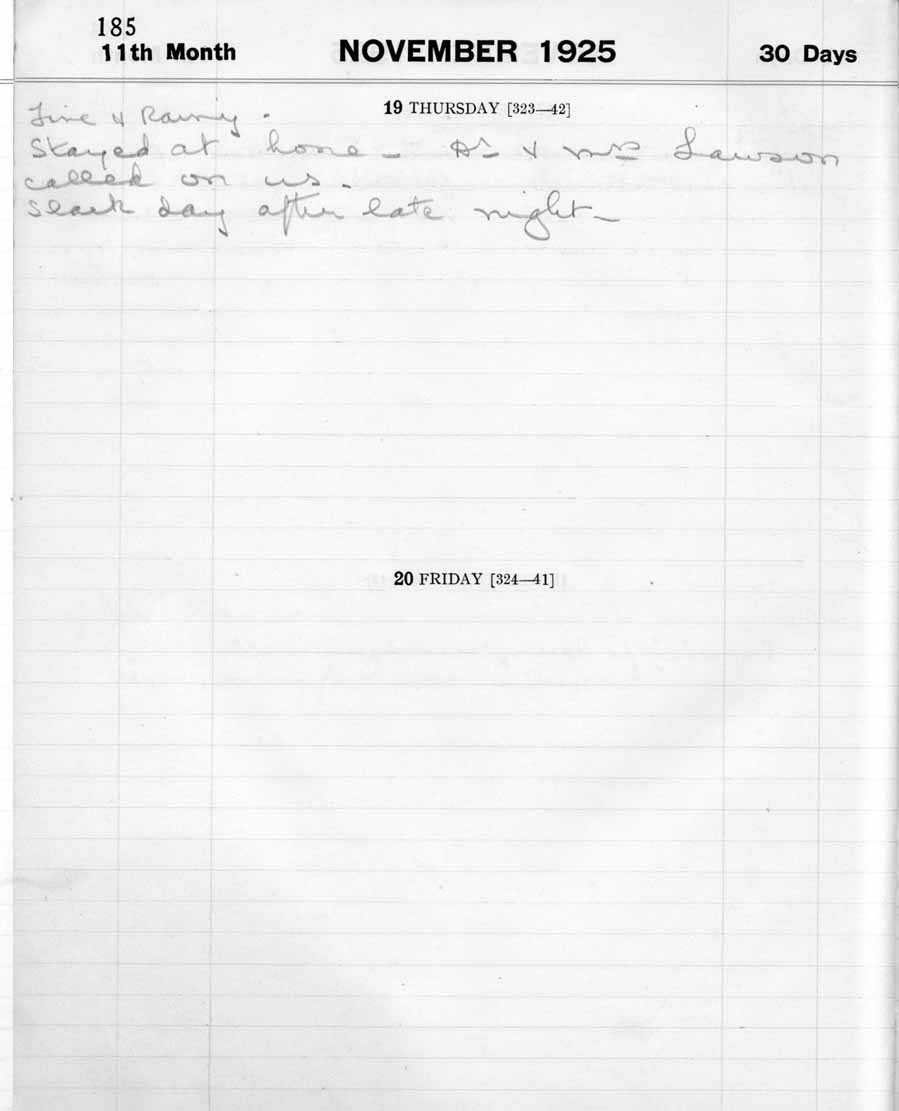 185
11th Month NOVEMBER 1925 30 Days
19 THURSDAY [323—42]
Fine & Rainy.
Stayed at home – Dr & Mrs Lawson
called on us.
Slack day after late night –
20 FRIDAY [324—41]